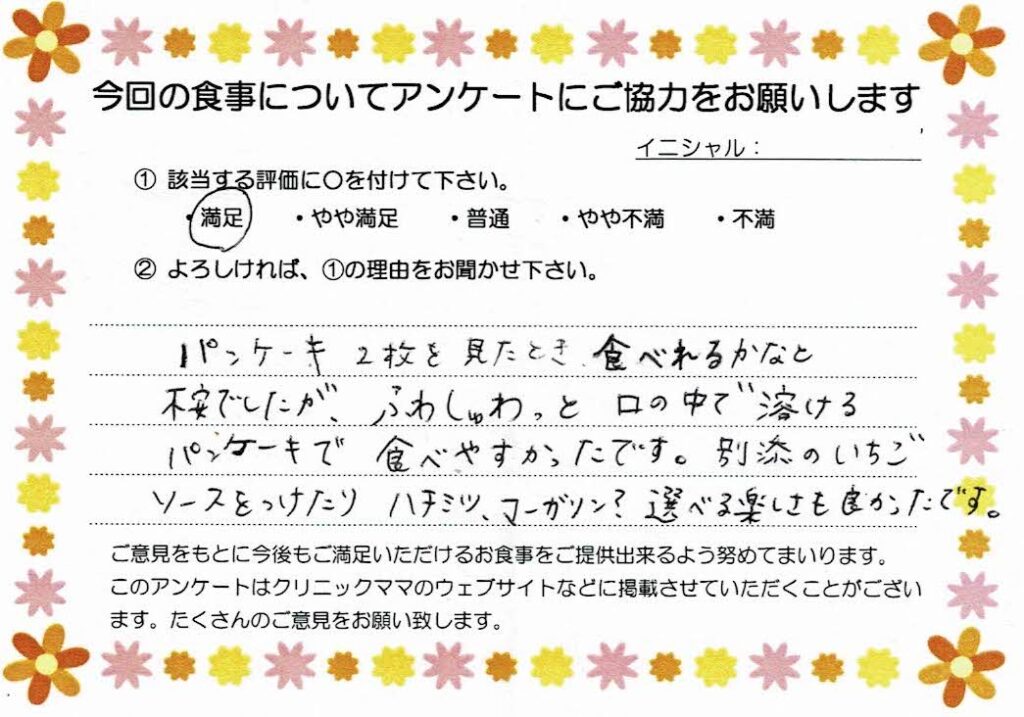 今回の食事についてアンケートにご協力をお願いします
イニシャル：
① 該当する評価に〇を付けて下さい。
・満足 ・やや満足 ・普通 ・やや不満 ・不満
② よろしければ、①の理由をお聞かせ下さい。
パンケーキ 2枚を見たとき、食べれるかなと
不安でしたが、ふわしゅわっと 口の中で溶ける
パンケーキで 食べやすかったです。別添のいちご
ソースをつけたり ハチミツ、マーガリン？選べる楽しさも良かったです。
ご意見をもとに今後もご満足いただけるお食事をご提供出来るよう努めてまいります。
このアンケートはクリニックママのウェブサイトなどに掲載させていただくことがござい
ます。たくさんのご意見をお願い致します。